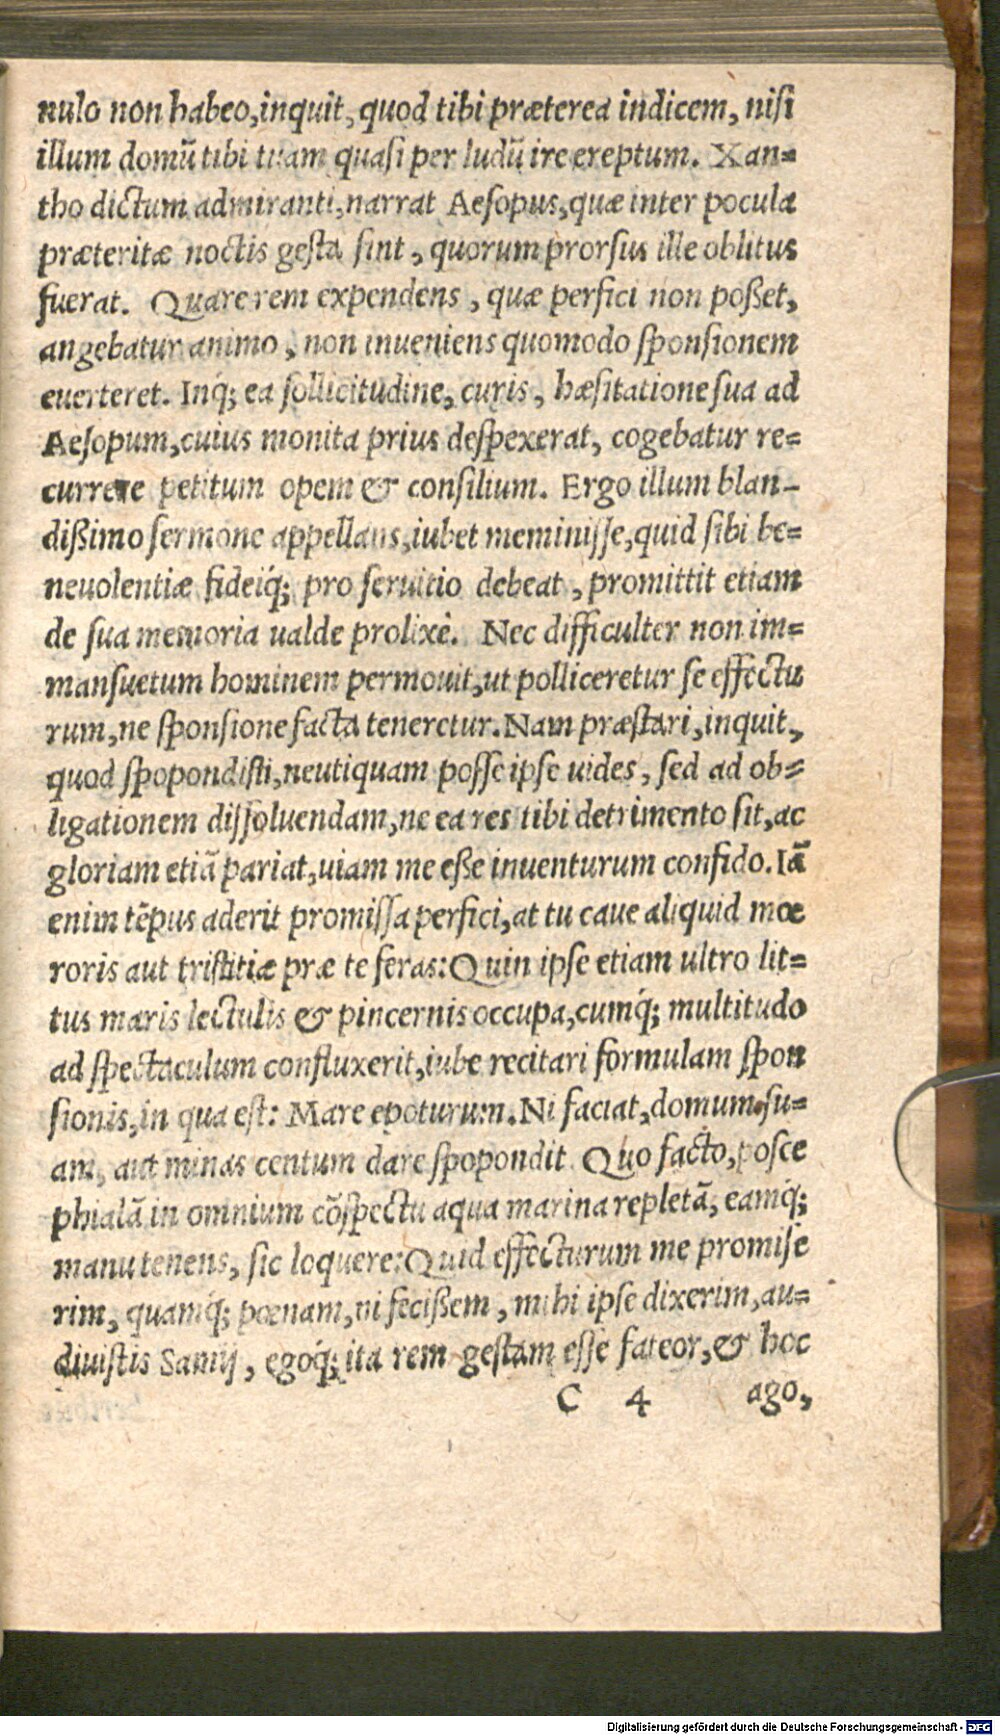 nulo non habeo,inquit, quod tibi præterea indicem, nisi
illum domū tibi tuam quasi per ludū ire ereptum. Xan=
tho dictum admiranti,narrat Aesopus,quæ inter pocula
præteritæ noctis gesta sint, quorum prorsus ille oblitus
fuerat. Quare rem expendens, quæ perfici non poßet,
angebatur animo, non inueniens quomodo sponsionem
euerteret. Inq́; ea sollicitudine, curis, hæsitatione sua ad
Aesopum,cuius monita prius despexerat, cogebatur re=
currere petitum opem & consilium. Ergo illum blan-
dißimo sermone appellans,iubet meminisse,quid sibi be=
neuolentiæ fideiq́; pro seruitio debeat, promittit etiam
de sua memoria ualde prolixè. Nec difficulter non im=
mansuetum hominem permouit,ut polliceretur se effectu
rum,ne sponsione facta teneretur. Nam præstari,inquit,
quod spopondisti,neutiquam posse ipse uides, sed ad ob=
ligationem dissoluendam,ne ea res tibi detrimento sit,ac
gloriam etiā pariat,uiam me eße inuenturum confido. Iā
enim tēpus aderit promissa perfici,at tu caue aliquid mœ
roris aut tristitiæ præ te feras: Quin ipse etiam ultro lit=
tus maris lectulis & pincernis occupa,cumq́; multitudo
ad spectaculum confluxerit,iube recitari formulam spon
sionis,in qua est: Mare epoturum. Ni faciat,domum su=
am, aut minas centum dare spopondit. Quo facto,posce
phialā in omnium cōspectu aqua marina repletā, eamq́;
manu tenens, sic loquere: Quid effecturum me promise
rim, quamq́; pœnam,ni fecißem, mihi ipse dixerim,au=
diuistis Samij, egoq́; ita rem gestam esse fateor,& hoc
C 4 ago,
Digitalisierung gefördert durch die Deutsche Forschungsgemeinschaft - DFG